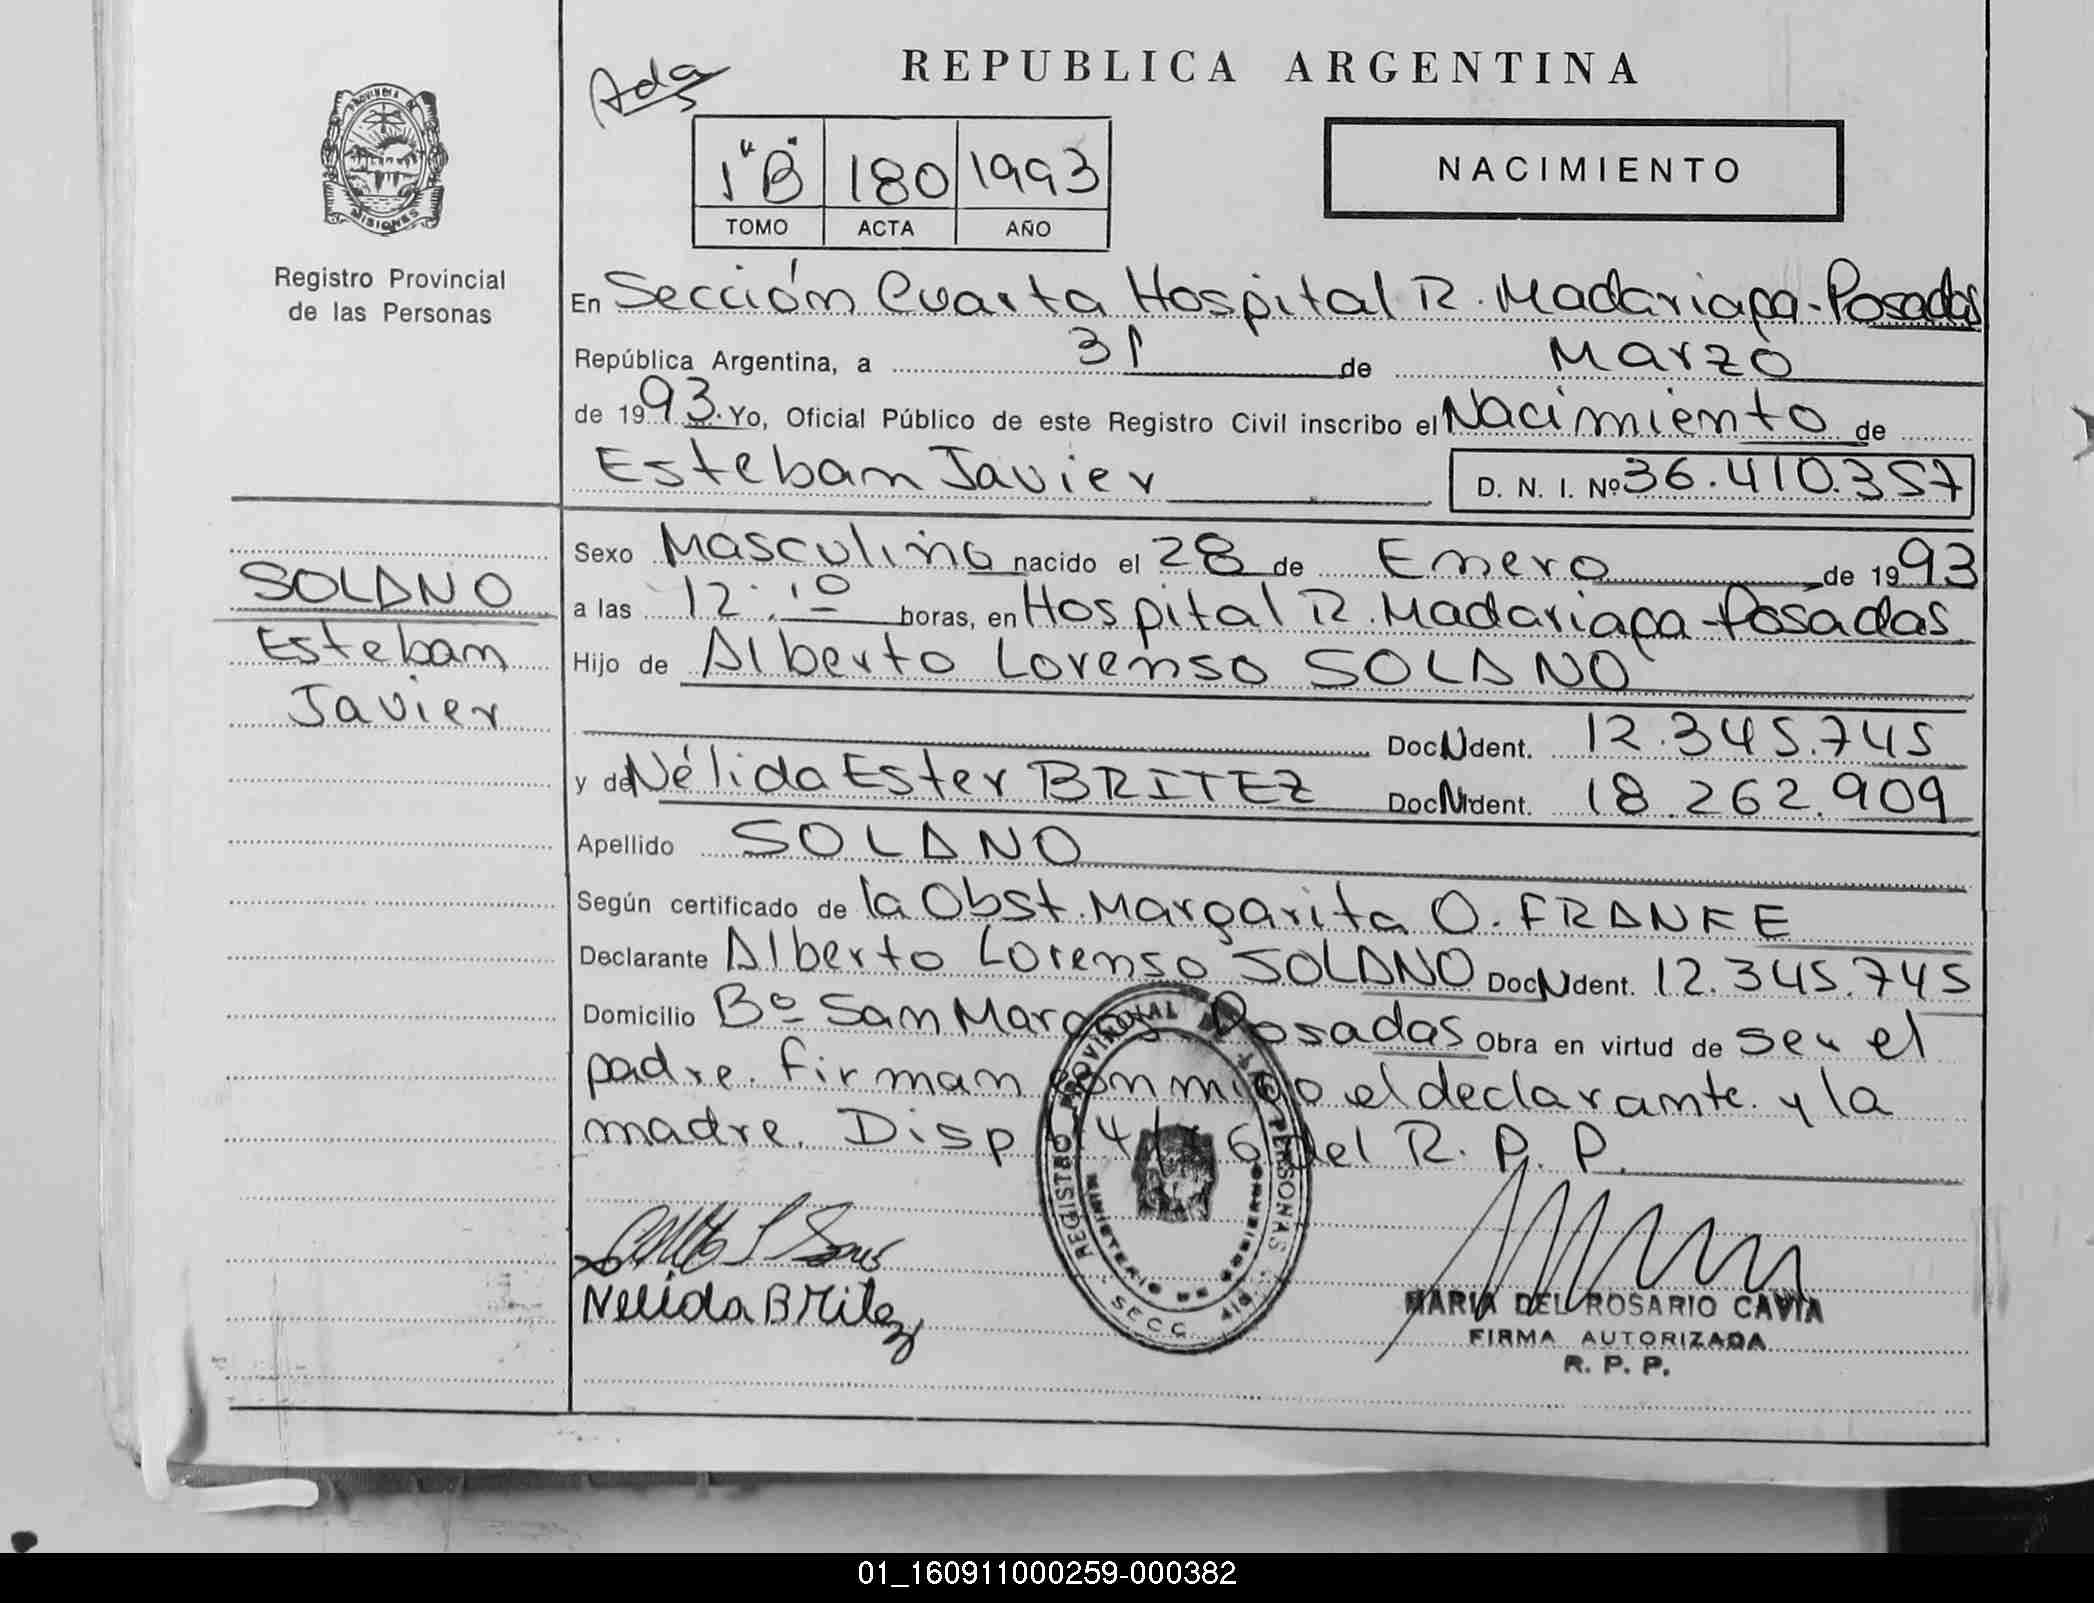 REPUBLICA ARGENTINA
PROVINCIA DE
MISIONES
Registro Provincial
de las Personas
1 "B" 180 1993
TOMO ACTA AÑO
NACIMIENTO
En Sección Cuarta Hospital R. Madariaga-Posadas
República Argentina, a 31 de Marzo
de 1993. Yo, Oficial Público de este Registro Civil inscribo el Nacimiento de
Esteban Javier D. N. I. Nº 36.410.357
SOLANO
Esteban
Javier
Sexo Masculino nacido el 28 de Enero de 1993
a las 12:10 horas, en Hospital R. Madariaga-Posadas
Hijo de Alberto Lorenso SOLANO
Doc Ndent. 12.345.745
y de Nélida Ester BRITEZ Doc Ndent. 18.262.909
Apellido SOLANO
Según certificado de la Obst. Margarita O. FRANKE
Declarante Alberto Lorenso SOLANO Doc Ndent. 12.345.745
Domicilio Bº San Marcos Posadas Obra en virtud de ser el
padre. Firman conmigo el declarante y la
madre. Disp del R. P. P.
REGISTRO PROVINCIAL DE LAS PERSONAS
MINISTERIO DE GOBIERNO
SECC.
Nelida BRitez
MARIA DEL ROSARIO CAVIA
FIRMA AUTORIZADA
R. P. P.
01_160911000259-000382